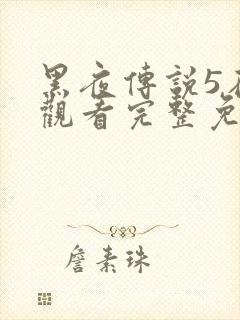 黑夜傳說5
觀看完整免
詹素珠